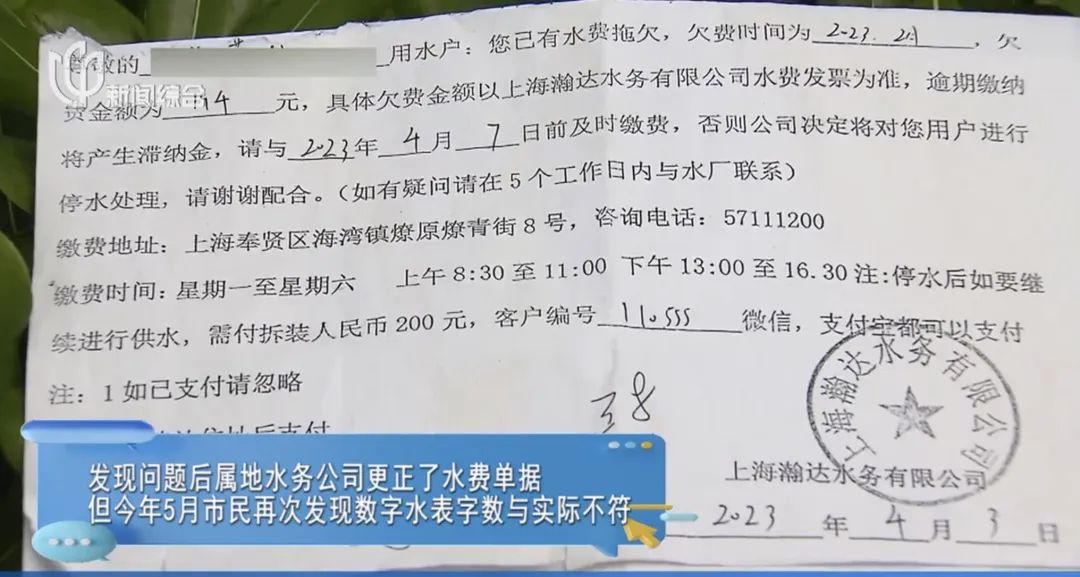 新闻综合
尊敬的 用水户：您已有水费拖欠，欠费时间为 2023.2月 ，欠
费金额为 元，具体欠费金额以上海瀚达水务有限公司水费发票为准，逾期缴纳
将产生滞纳金，请与 2023 年 4 月 7 日前及时缴费，否则公司决定将对您用户进行
停水处理，请谢谢配合。（如有疑问请在 5 个工作日内与水厂联系）
缴费地址：上海奉贤区海湾镇燎原燎青街 8 号，咨询电话：57111200
缴费时间：星期一至星期六 上午 8:30 至 11:00 下午 13:00 至 16.30 注:停水后如要继
续进行供水，需付拆装人民币 200 元，客户编号 110555 微信，支付宝都可以支付
注：1 如已支付请忽略
后支付
上海瀚达水务有限公司
上海瀚达水务有限公司
2023 年 4 月 3 日
发现问题后属地水务公司更正了水费单据
但今年5月市民再次发现数字水表字数与实际不符